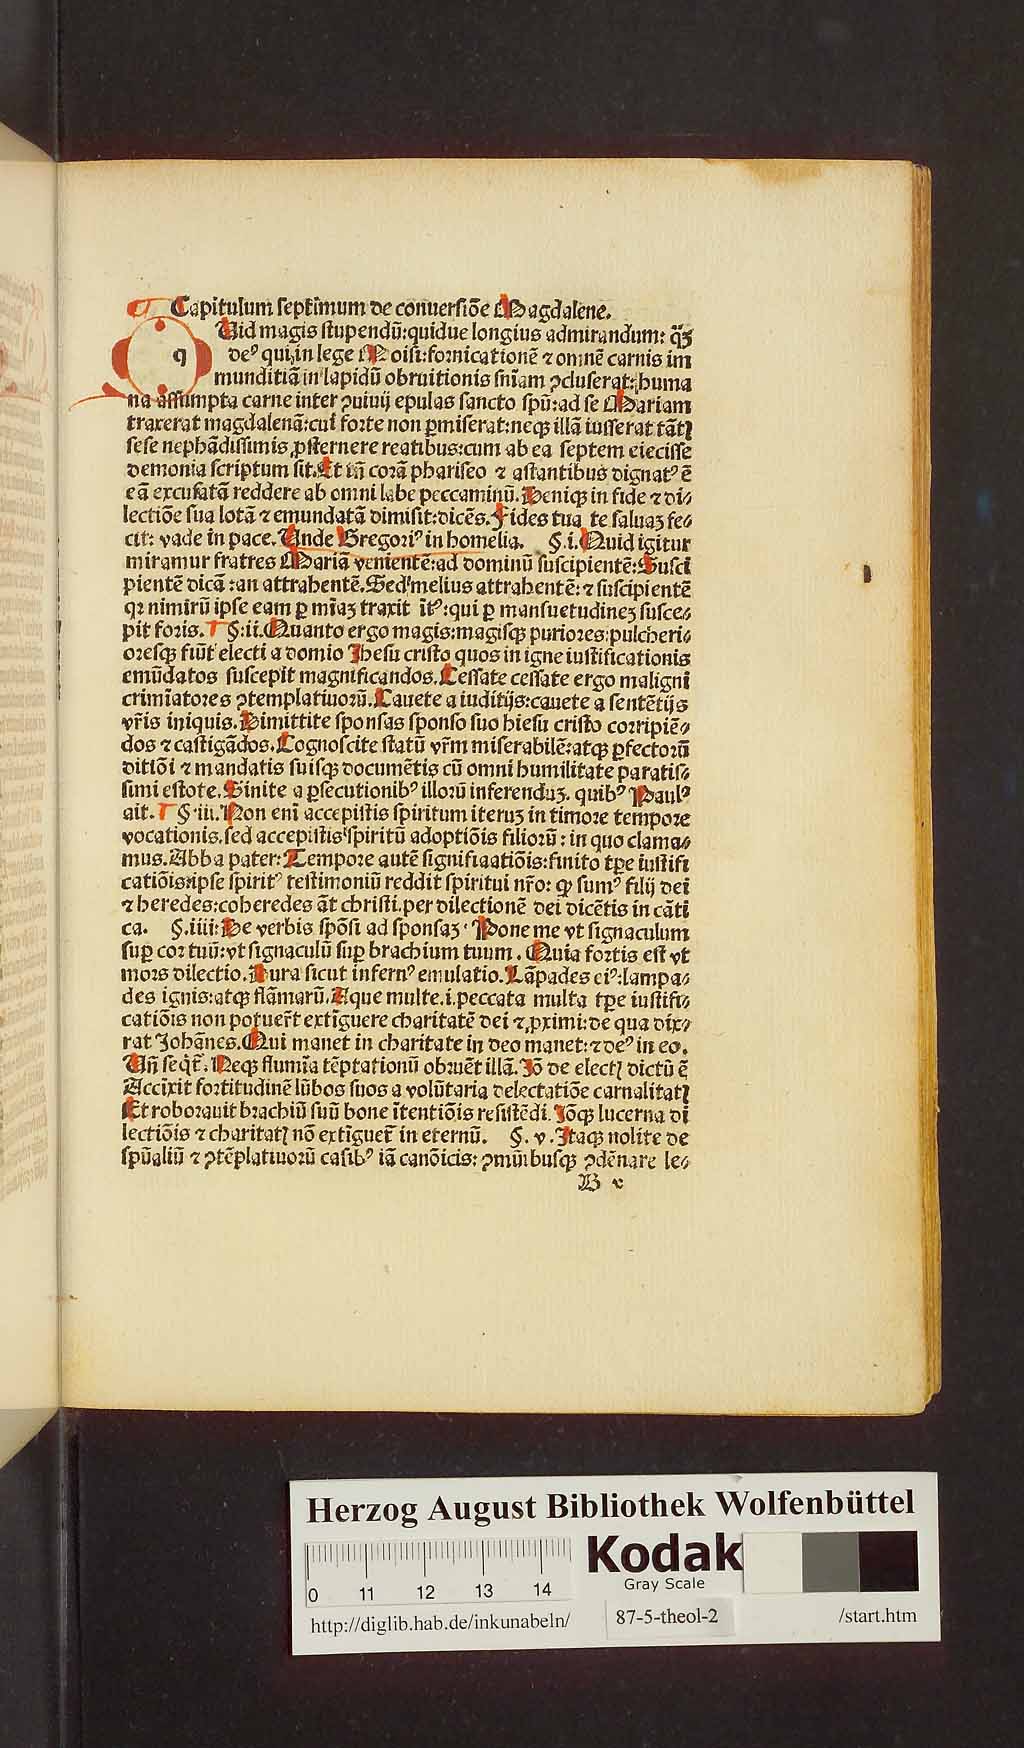 Capitulum septimum de conuersiõe Magdalene.
Qvid magis stupendũ: quidue longius admirandum: qꝫ
deꝰ qui in lege Moisi: fornicationẽ ⁊ omnẽ carnis im
munditiã in lapidũ obruitionis sñiam ꝯcluserat: huma
na assumpta carne inter ꝯuiuij epulas sancto spũ: ad se Mariam
traxerat magdalenã: cui forte non ꝑmiserat: neqꝫ illã iusserat tãtꝭ
sese nephãdissimis ꝓsternere reatibus: cum ab ea septem eiecisse
demonia scriptum sit. Et tñ corã phariseo ⁊ astantibus dignatꝰ ẽ
eã excusatã reddere ab omni labe peccaminũ. Deniqꝫ in fide ⁊ di⸗
lectiõe sua lotã ⁊ emundatã dimisit: dicẽs. Fides tua te saluaꝫ fe⸗
cit: vade in pace. Unde Gregoriꝰ in homelia. §.i. Quid igitur
miramur fratres Mariã venientẽ: ad dominũ suscipientẽ: Susci
pientẽ dicã: an attrahentẽ. Sed melius attrahentẽ: ⁊ suscipientẽ
qꝛ nimirũ ipse eam ꝑ mĩaꝫ traxit ĩtꝰ: qui ꝑ mansuetudineꝫ susce⸗
pit foris. §:ii. Quanto ergo magis: magisqꝫ puriores: pulcheri⸗
oresqꝫ fiũt electi a domio Jhesu cristo quos in igne iustificationis
emũdatos suscepit magnificandos. Cessate cessate ergo maligni
crimiatores ꝯtemplatiuorũ. Cauete a iuditijs: cauete a sentẽtijs
vr̃is iniquis. Dimittite sponsas sponso suo hiesu cristo corripiẽ⸗
dos ⁊ castigãdos. Cognoscite statũ vr̃m miserabilẽ: atqꝫ ꝑfectorũ
ditiõi ⁊ mandatis suisqꝫ documẽtis cũ omni humilitate paratis⸗
simi estote. Sinite a ꝑsecutionibꝰ illorũ inferenduꝫ. quibꝰ Paulꝰ
ait. §.iii. Non eni accepistis spiritum iteruꝫ in timore tempore
vocationis. sed accepistis spiritũ adoptiõis filiorũ: in quo clama⸗
mus. Abba pater: Tempore autẽ signifiaatiõis: finito tꝑe iustifi
catiõis: ipse spiritꝰ testimoniũ reddit spiritui nr̃o: qꝫ sumꝰ filij dei
⁊ heredes: coheredes ãt christi. per dilectionẽ dei dicẽtis in cãti
ca. §.iiii: De verbis spõsi ad sponsaꝫ. Pone me vt signaculum
suꝑ cor tuũ: vt signaculũ suꝑ brachium tuum. Quia fortis est vt
mors dilectio. Dura sicut infernꝰ emulatio. Lãpades eiꝰ: lampa⸗
des ignis: atqꝫ flãmarũ. Aque multe. i. peccata multa tꝑe iustifi⸗
catiõis non potuer̃t extĩguere charitatẽ dei ⁊ ꝓximi: de qua dix⸗
rat Johãnes. Qui manet in charitate in deo manet: ⁊ deꝰ in eo.
Uñ seqt̃. Neqꝫ flumia tẽptationũ obruẽt illã. Jõ de electꝭ dictũ ẽ
Accĩxit fortitudinẽ lũbos suos a volũtaria delectatiõe carnalitatꝭ
Et roborauit brachiũ suũ bone ĩtentiõis resistẽdi. Jõqꝫ lucerna di
lectiõis ⁊ charitatꝭ nõ extĩguet̃ in eternũ. §. v. Jtaqꝫ nolite de
spũaliũ ⁊ ꝯtẽplatiuorũ casibꝰ iã canõicis: ꝯmũibusqꝫ ꝯdẽnare le⸗
B v
Herzog August Bibliothek Wolfenbüttel
0 11 12 13 14
Kodak
Gray Scale
http://diglib.hab.de/inkunabeln/ 87-5-theol-2 /start.htm